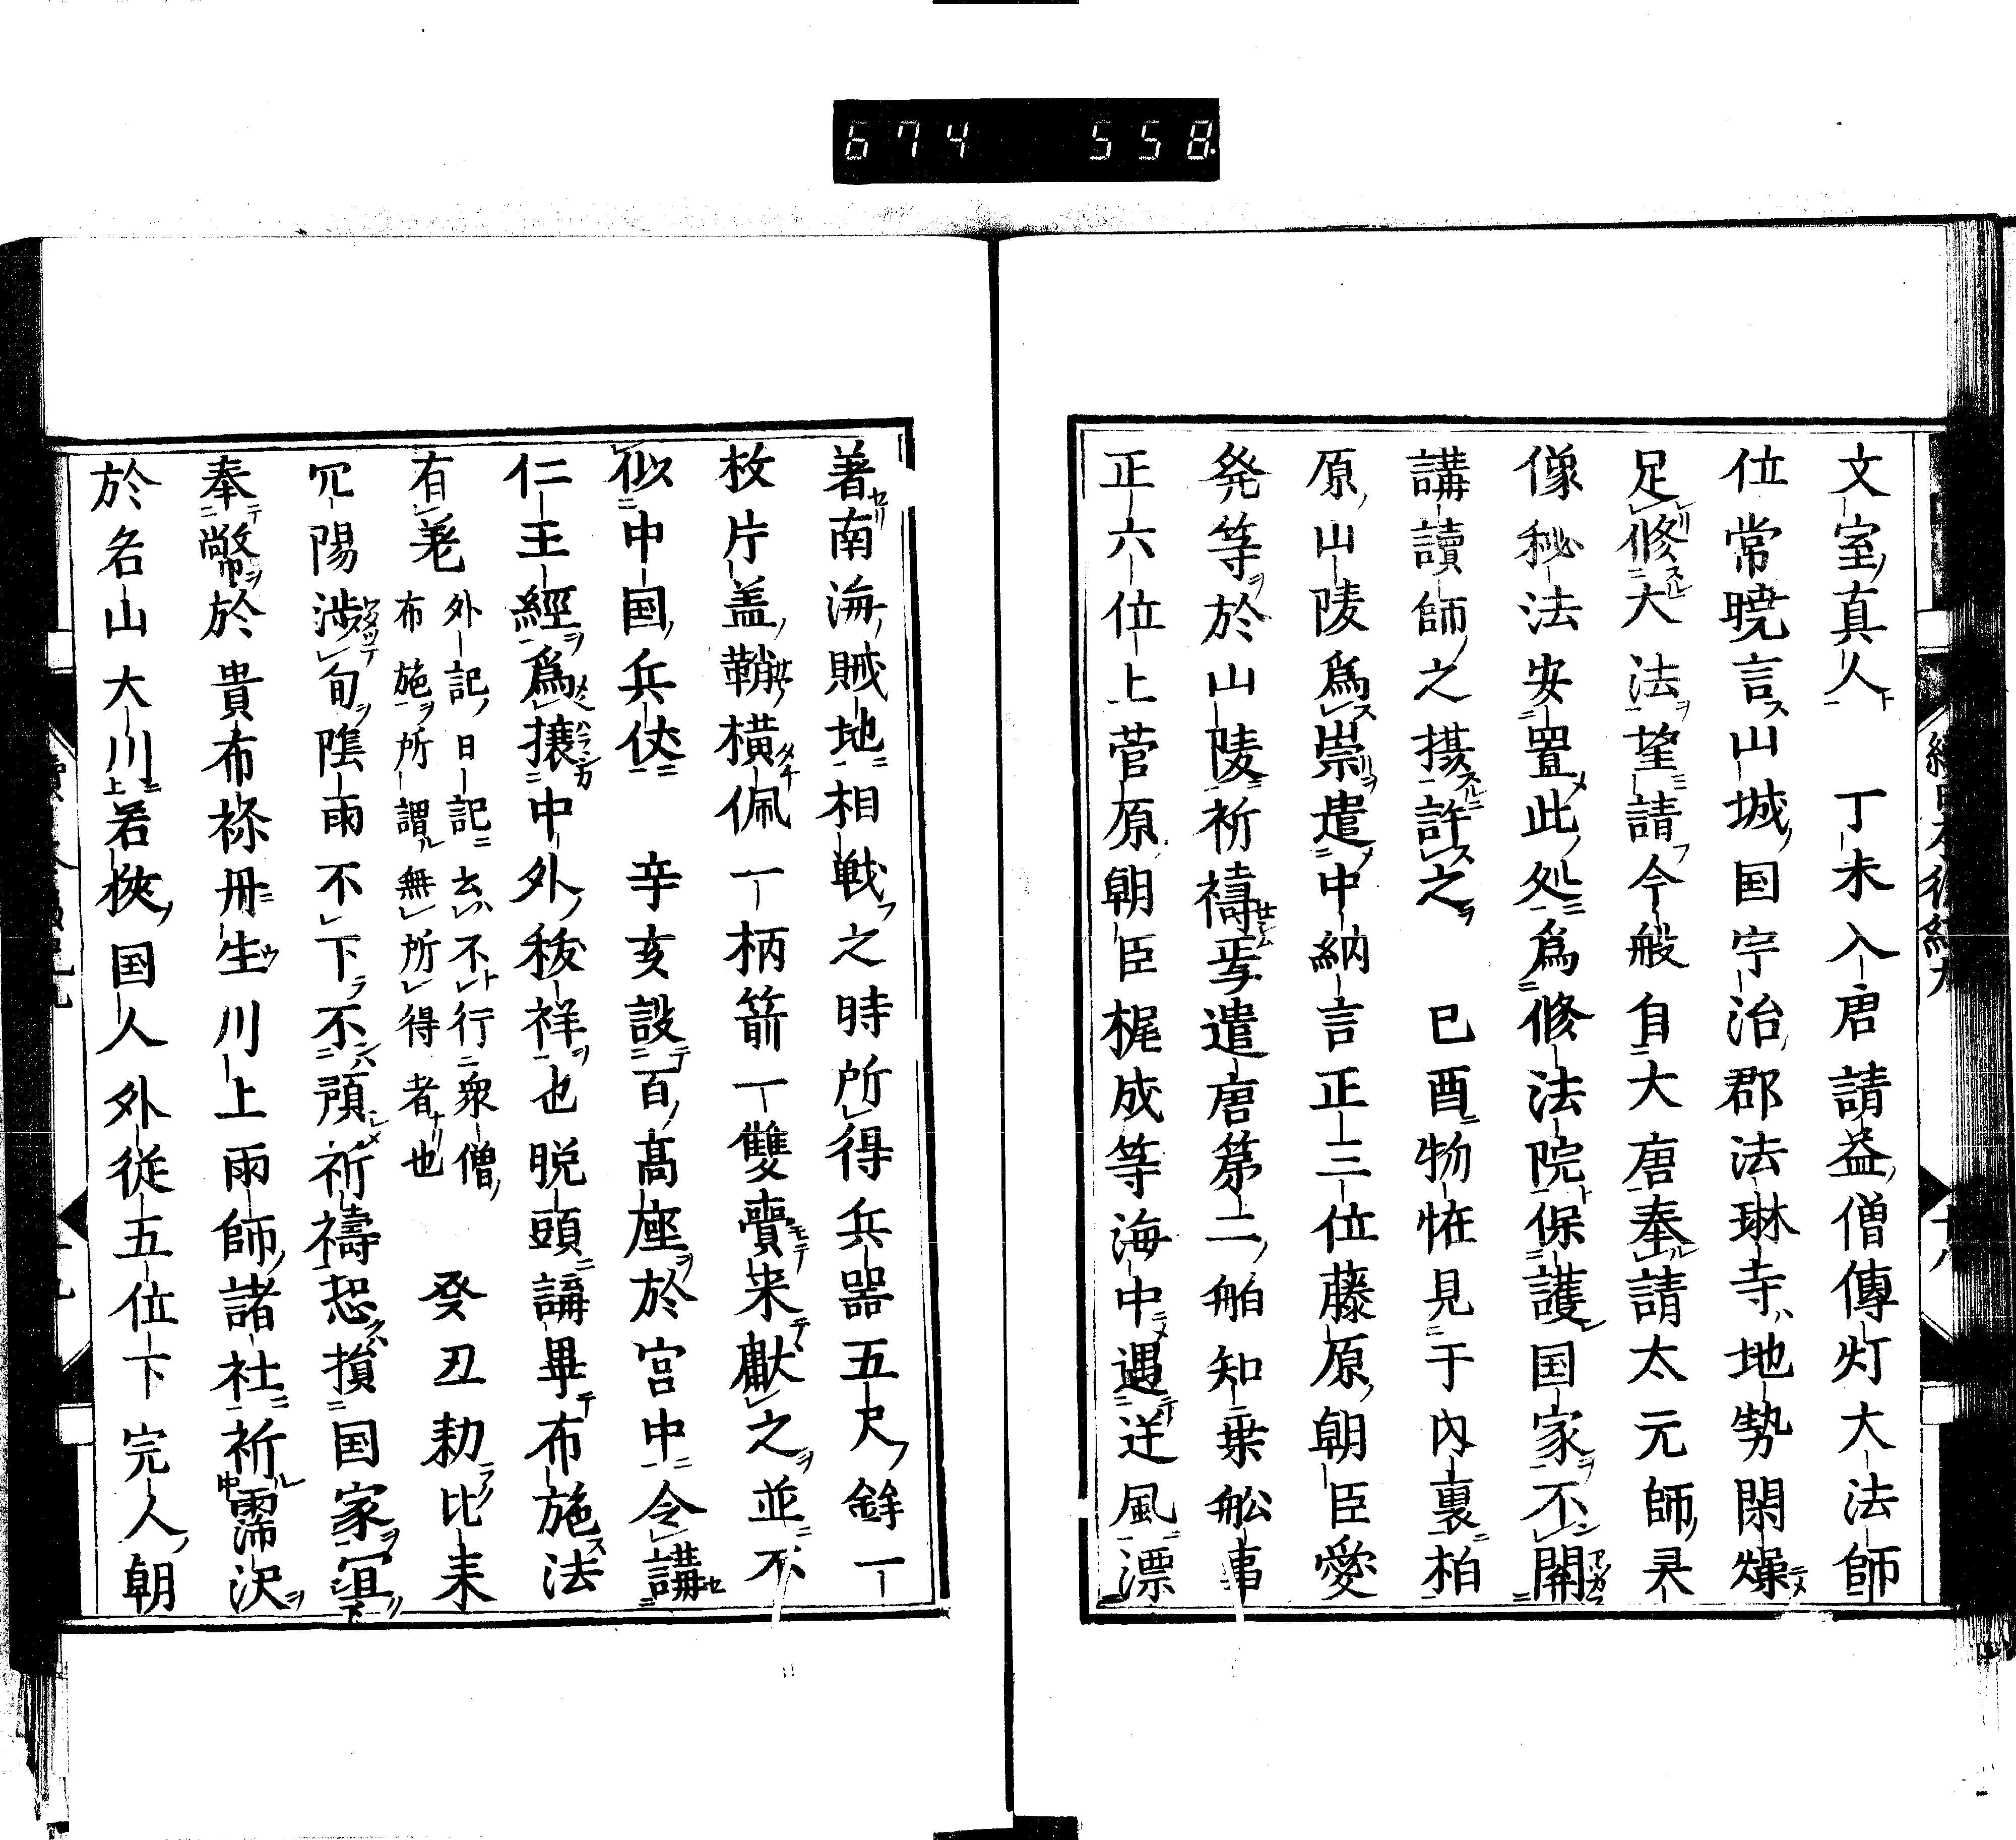 674 558
文室真人 丁未入唐請益僧傳灯大法師
位常曉言山城国宇治郡法琳寺地勢閑燥
足修大法望請今般自大唐奉請太元師㚑
像秘法安置此処爲修法院保護国家不關
講讀師之摂許之 已酉物恠見于內裏柏
原山陵爲崇遣中納言正三位藤原朝臣愛
発等於山陵祈禱焉遣唐第二舶知乗舩事
正六位上菅原朝臣梶成等海中遇逆風漂
著南海賊地相戦之時所得兵器五尺鉾一
枚片盖鞘横佩一柄箭一雙賷来獻之並不
似中国兵仗 辛亥設百髙座於宮中令講
仁王經爲攘中外祲祥也脱頭講畢布施法
有差 外記日記云不行衆僧
布施所謂無所得者也 癸丑勅比来
亢陽渉旬隂雨不下不預祈禱恐損国家冝
奉幣於貴布祢丹生川上雨師諸社祈霈沢
於名山大川若狹国人外従五位下完人朝